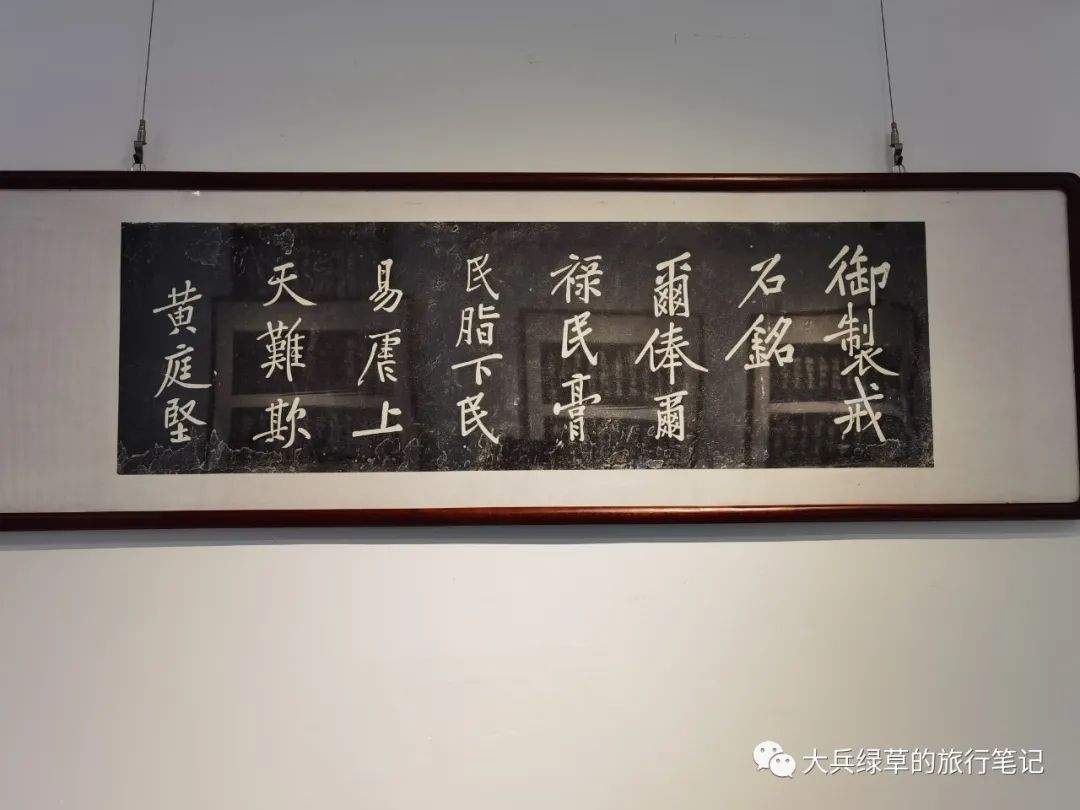 御製戒
石銘
爾俸爾
禄民膏
民脂下民
易虐上
天難欺
黄庭堅
大兵绿草的旅行笔记